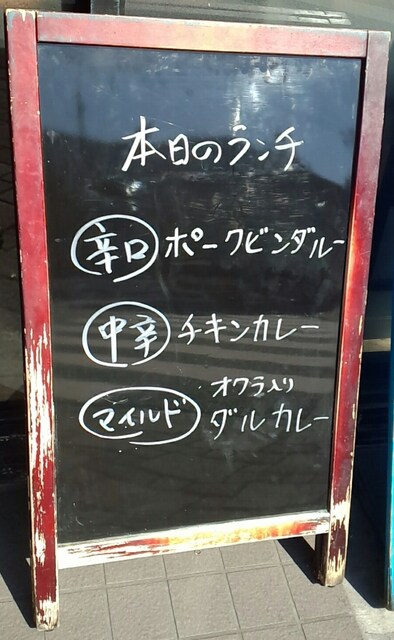 本日のランチ
辛口 ポークビンダルー
中辛 チキンカレー
オクラ入り
マイルド ダルカレー